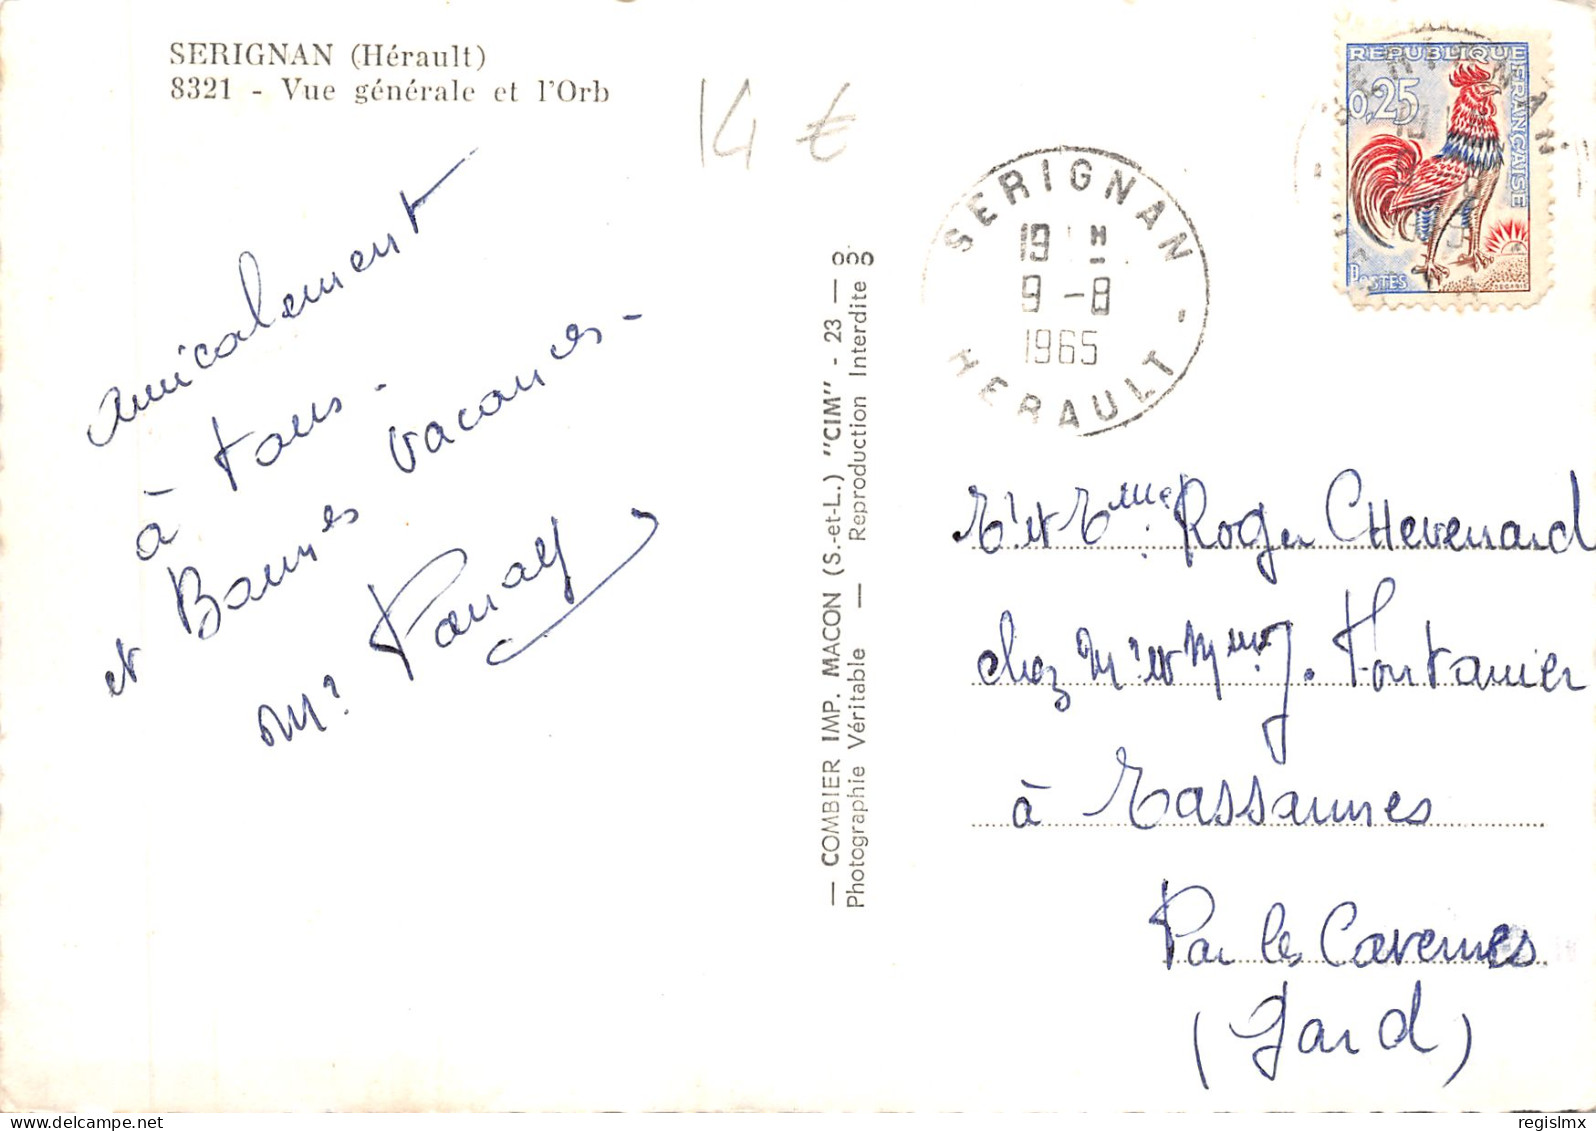 SERIGNAN (Hérault)
8321 - Vue générale et l'Orb
14 €
amicalement
à tous -
et Bonnes vacances -
Mr
— COMBIER IMP. MACON (S.-et-L.) "CIM" - 23 —
Photographie Véritable — Reproduction Interdite
SERIGNAN
19 H
9 - 8
1965
HERAULT
REPUBLIQUE FRANÇAISE
0,25
POSTES
Mr et Mme Roger CHevenard
chez Mr et Mme J. Fontanier
à Tassannes
Par les Cavernes
(Gard)
regislmx